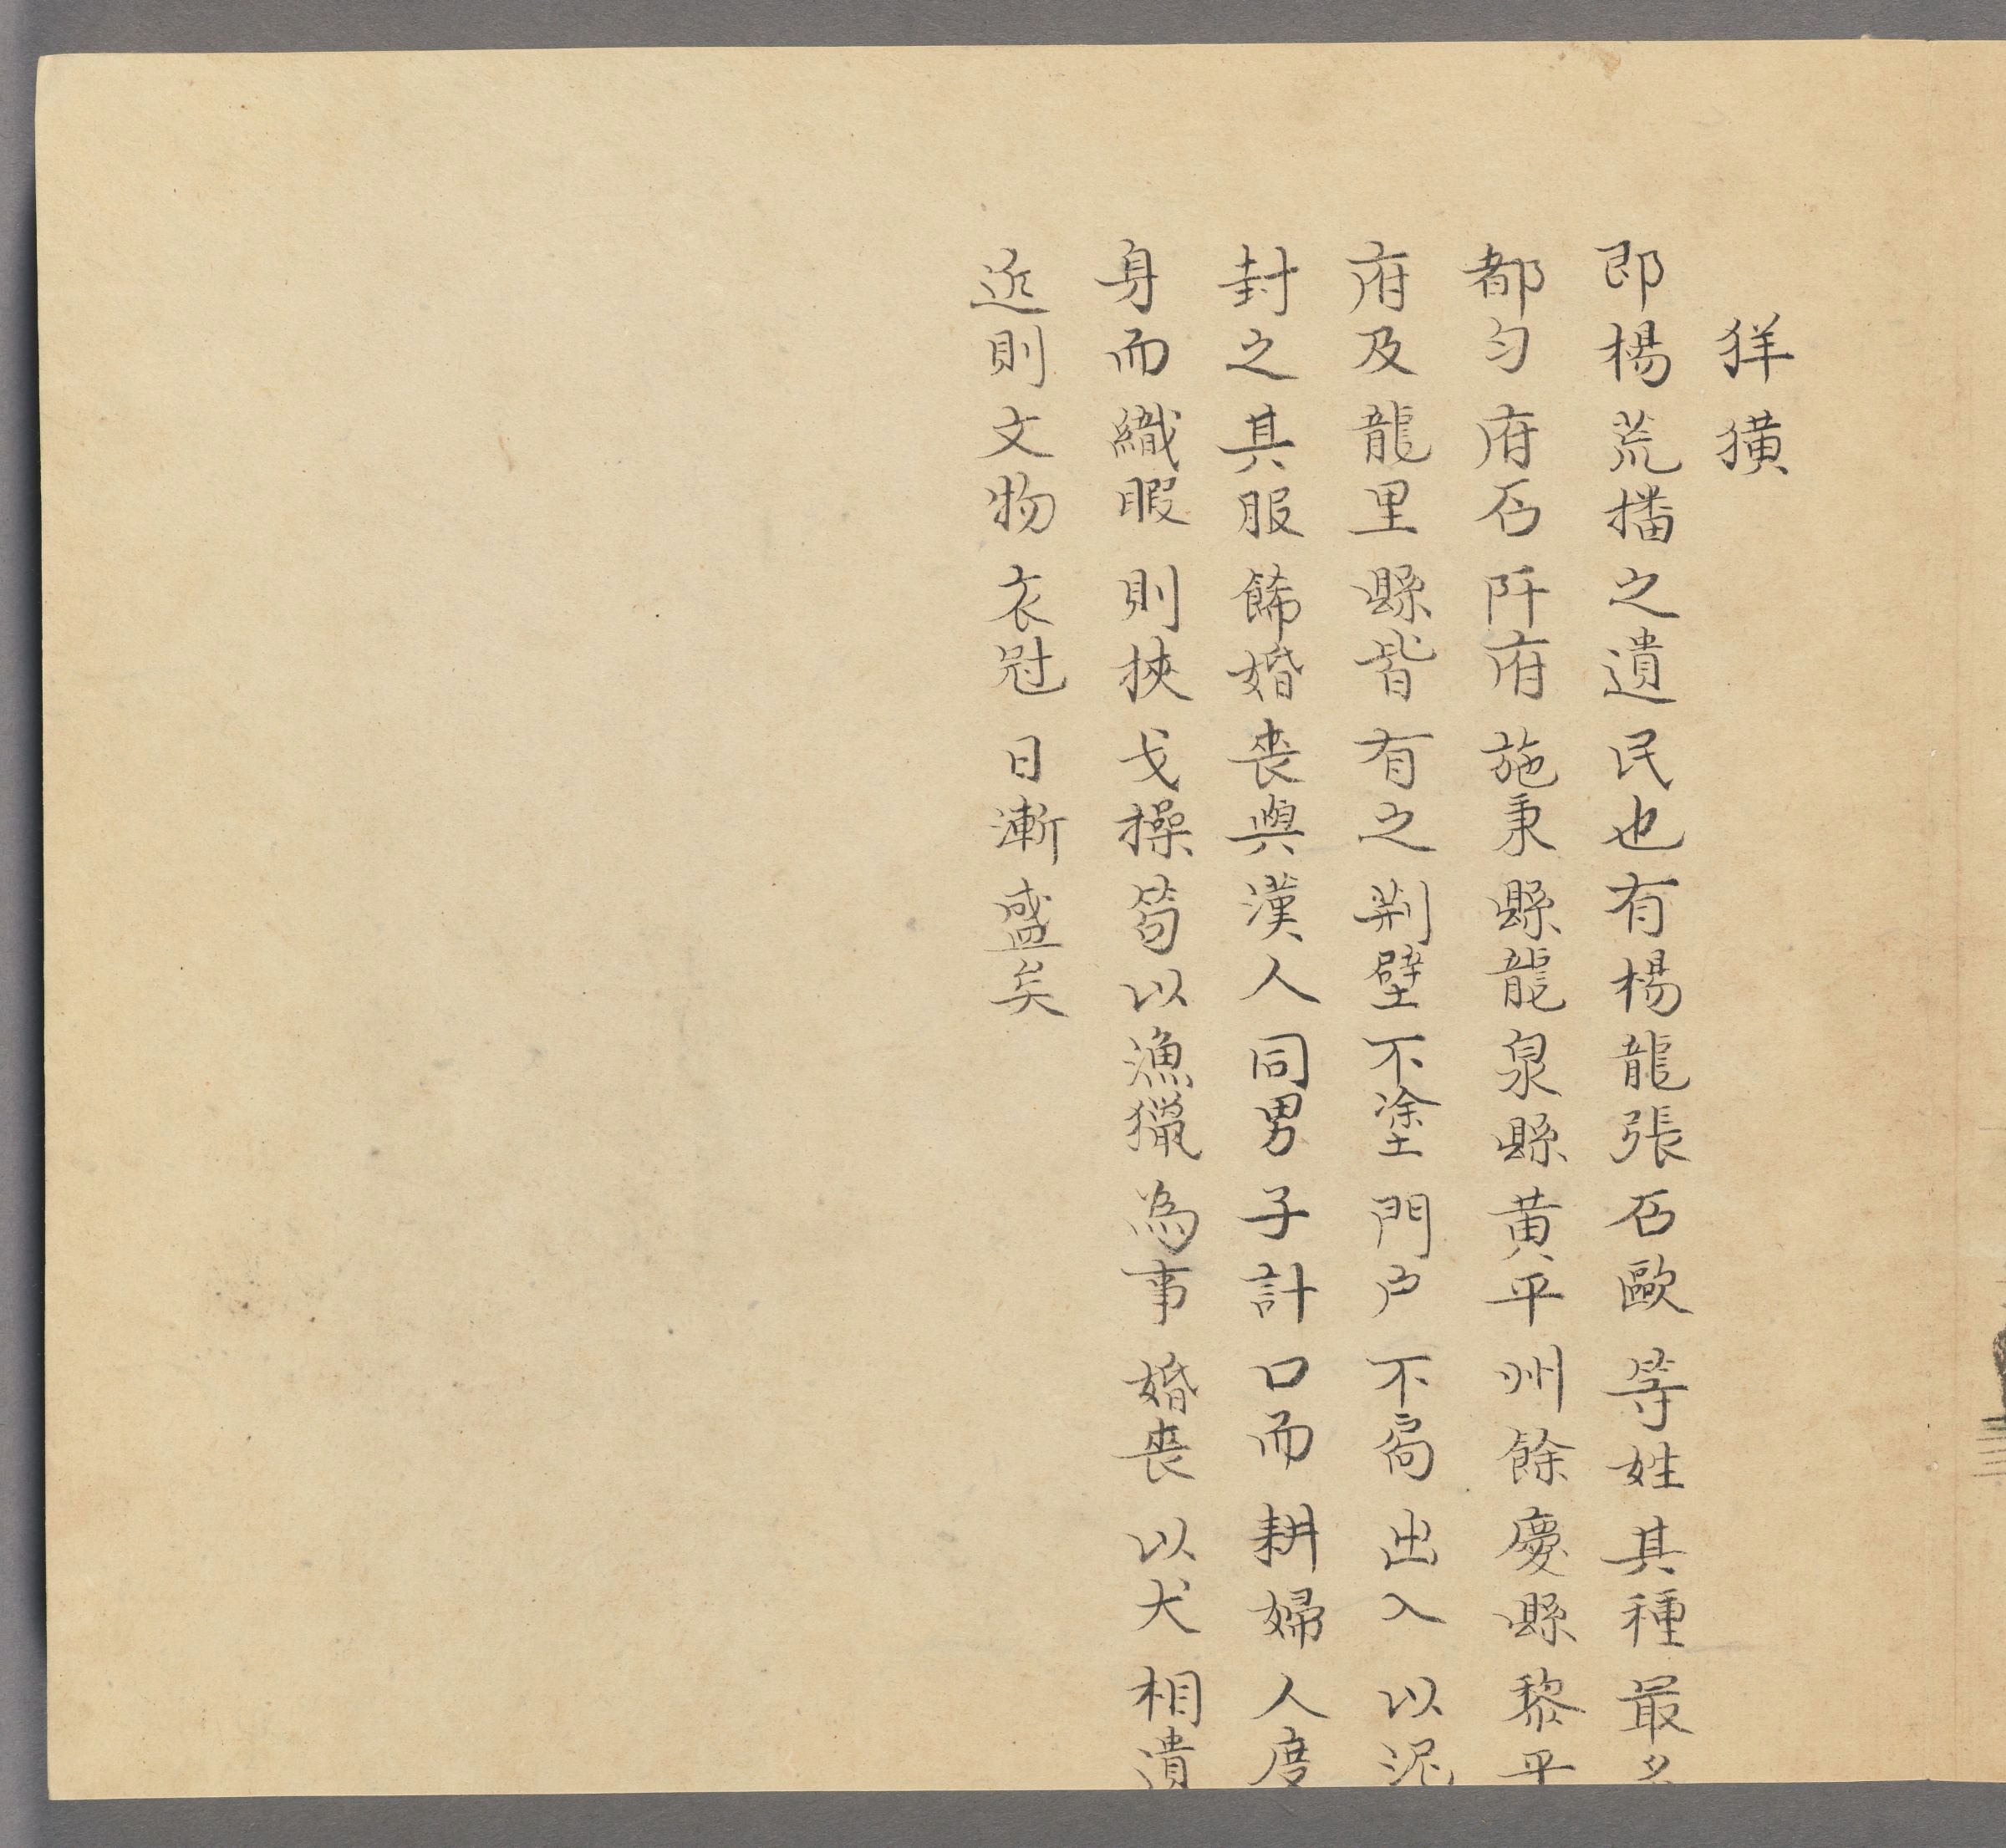 狑獚
即楊荒播之遺民也有楊龍張石歐等姓其種最多
都勻府石阡府施秉縣龍泉縣黄平州餘慶縣黎平
府及龍里縣皆有之荆壁不塗門戶不扃出入以泥
封之其服飾婚丧與漢人同男子計口而耕婦人度
身而織暇則挾戈操笱以漁獵為事婚丧以犬相遺
近則文物衣冠日漸盛矣